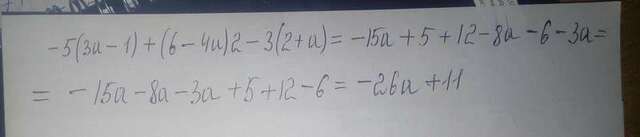 -5(3a-1)+(6-4a)2-3(2+a)= -15a+5+12-8a-6-3a=
= -15a-8a-3a+5+12-6= -26a+11